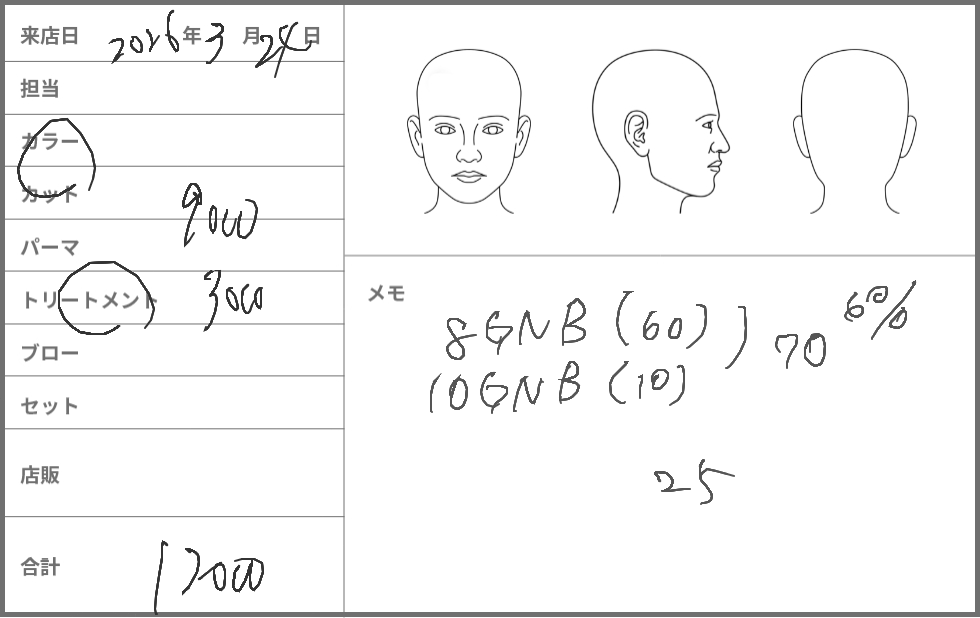 来店日 2026年3月24日
担当
カラー
カット 9000
パーマ
トリートメント 3000
ブロー
セット
店販
合計 12000
メモ
8GNB (60) ) 70 6%
10GNB (10)
25